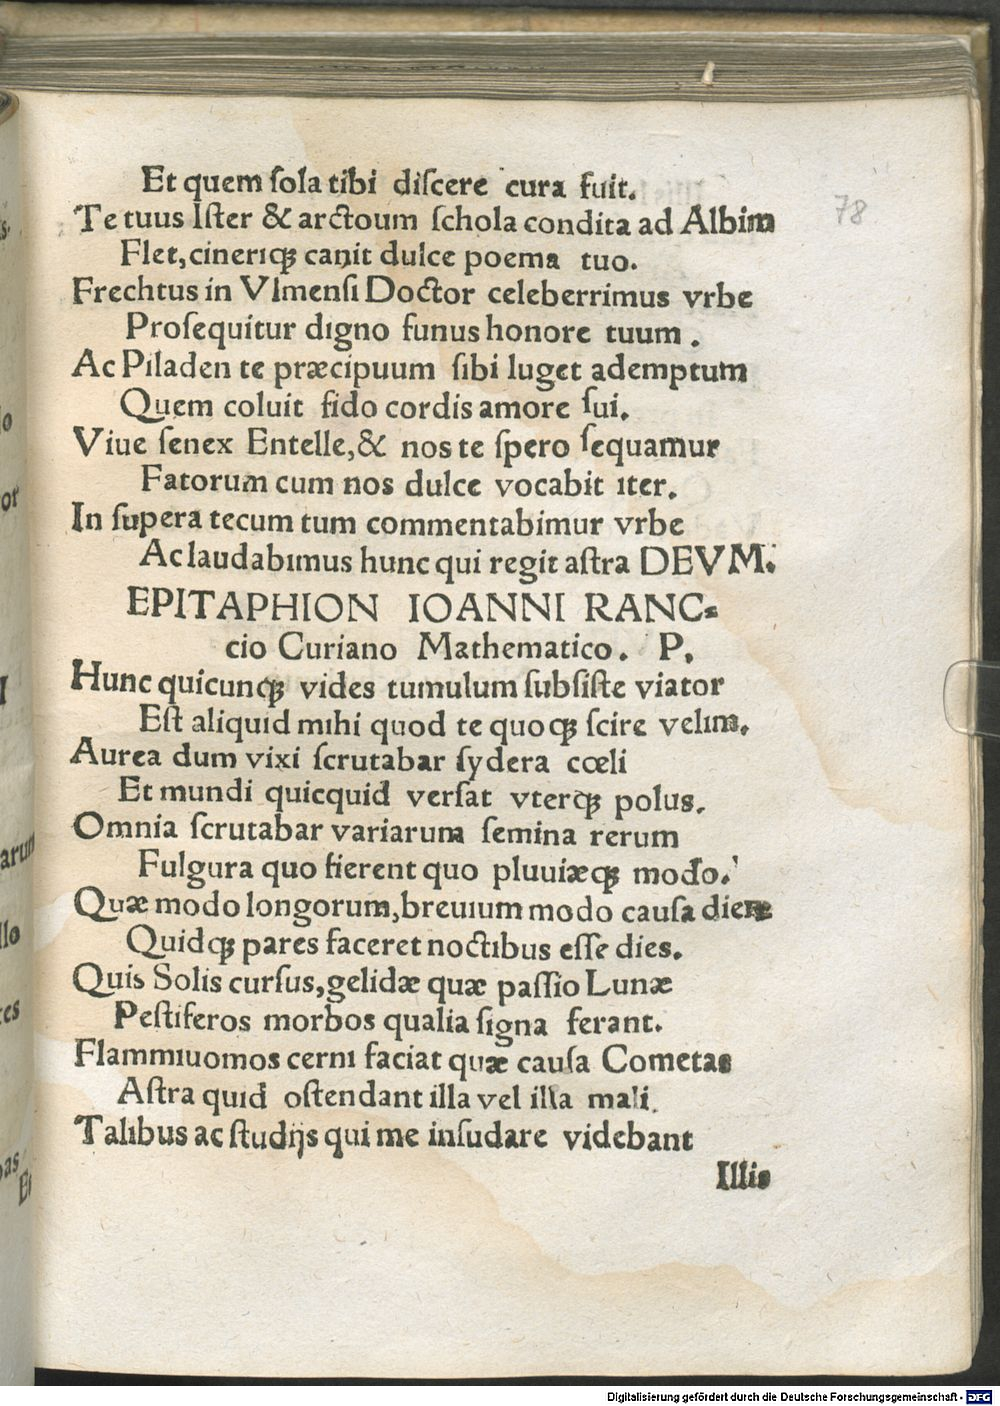 Et quem ſola tibi diſcere cura fuit.
Te tuus Iſter & arctoum ſchola condita ad Albim
78
Flet, cineriqꝫ canit dulce poema tuo.
Frechtus in Vlmenſi Doctor celeberrimus vrbe
Proſequitur digno funus honore tuum.
Ac Piladen te præcipuum ſibi luget ademptum
Quem coluit fido cordis amore ſui.
Viue ſenex Entelle, & nos te ſpero ſequamur
Fatorum cum nos dulce vocabit iter.
In ſupera tecum tum commentabimur vrbe
Ac laudabimus hunc qui regit aſtra DEVM.
EPITAPHION IOANNI RANC-
cio Curiano Mathematico. P.
Hunc quicunqꝫ vides tumulum ſubſiſte viator
Eſt aliquid mihi quod te quoqꝫ ſcire velim.
Aurea dum vixi ſcrutabar ſydera cœli
Et mundi quicquid verſat vterqꝫ polus.
Omnia ſcrutabar variarum ſemina rerum
Fulgura quo fierent quo pluuiæqꝫ modo.
Quæ modo longorum, breuium modo cauſa dierum
Quidqꝫ pares faceret noctibus eſſe dies.
Quis Solis curſus, gelidæ quæ paſſio Lunæ
Peſtiferos morbos qualia ſigna ferant.
Flammiuomos cerni faciat quæ cauſa Cometas
Aſtra quid oſtendant illa vel illa mali.
Talibus ac ſtudijs qui me inſudare videbant
Illis
Digitalisierung gefördert durch die Deutsche Forschungsgemeinschaft - DFG